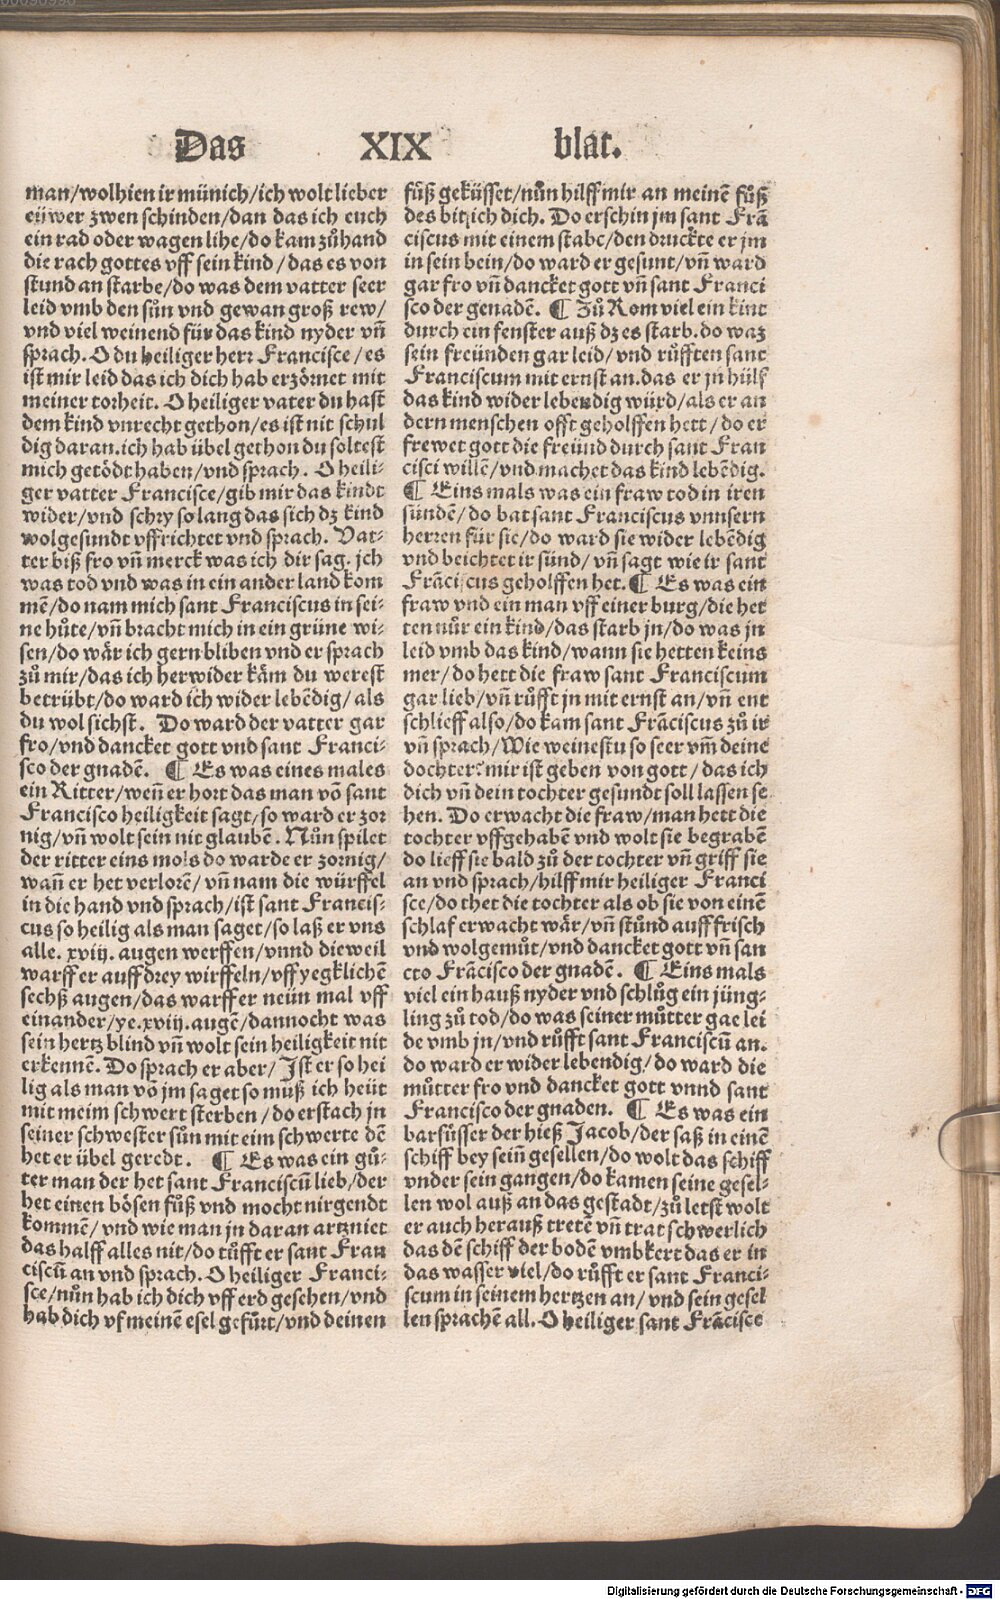 Das XIX blat.
man/wolhien ir münich/ich wolt lieber
eüwer zwen schinden/dan das ich euch
ein rad oder wagen lihe/do kam zůhand
die rach gottes vff sein kind/das es von
stund an starbe/do was dem vatter seer
leid vmb den sůn vnd gewan groß rew/
vnd viel weinend für das kind nyder vñ
sprach. O du heiliger herr Francisce/es
ist mir leid das ich dich hab erzörnet mit
meiner torheit. O heiliger vater du hast
dem kind vnrecht gethon/es ist nit schul
dig daran.ich hab übel gethon du soltest
mich getödt haben/vnd sprach. O heili-
ger vatter Francisce/gib mir das kindt
wider/vnd schry so lang das sich dz kind
wolgesundt vffrichtet vnd sprach. Vat-
ter biß fro vñ merck was ich dir sag. jch
was tod vnd was in ein ander land kom
mē/do nam mich sant Franciscus in sei-
ne hůte/vñ bracht mich in ein grüne wi-
sen/do wår ich gern bliben vnd er sprach
zů mir/das ich herwider kåm du werest
betrübt/do ward ich wider lebēdig/als
du wol sichst. Do ward der vatter gar
fro/vnd dancket gott vnd sant Franci-
sco der gnadē. ¶ Es was eines males
ein Ritter/weñ er hort das man võ sant
Francisco heiligkeit sagt/so ward er zor
nig/vñ wolt sein nit glaubē. Nůn spilet
der ritter eins mols do warde er zornig/
wañ er het verlorē/vñ nam die würffel
in die hand vnd sprach/ist sant Francis-
cus so heilig als man saget/so laß er vns
alle. xviij. augen werffen/vnnd dieweil
warff er auff drey wirffeln/vff yegklichē
sechß augen/das warff er neün mal vff
einander/ye.xviij.augē/dannocht was
sein hertz blind vñ wolt sein heiligkeit nit
erkennē. Do sprach er aber/Ist er so hei
lig als man võ jm saget so můß ich heüt
mit meim schwert sterben/do erstach jn
seiner schwester sůn mit eim schwerte dē
het er übel geredt. ¶ Es was ein gů-
ter man der het sant Franciscū lieb/der
het einen bösen fůß vnd mocht nirgendt
kommē/vnd wie man jn daran artzniet
das halff alles nit/do růfft er sant Fran
ciscū an vnd sprach. O heiliger Franci-
sce/nůn hab ich dich vff erd gesehen/vnd
hab dich vf meinē esel gefůrt/vnd deinen
fůß geküsset/nůn hilff mir an meinē fůß
des bit ich dich. Do erschin jm sant Frā
ciscus mit einem stabe/den druckte er jm
in sein bein/do ward er gesunt/vñ ward
gar fro vñ dancket gott vñ sant Franci
sco der genadē. ¶ Zů Rom viel ein kint
durch ein fenster auß dz es starb. do waz
sein freünden gar leid/vnd růfften sant
Franciscum mit ernst an.das er jn hülf
das kind wider lebendig würd/als er an
dern menschen offt geholffen hett/do er
frewet gott die freünd durch sant Fran
cisci willē/vnd machet das kind lebēdig.
¶ Eins mals was ein fraw tod in iren
sündē/do bat sant Franciscus vnnsern
herren für sie/do ward sie wider lebēdig
vnd beichtet ir sünd/vñ sagt wie ir sant
Frāciscus geholffen het.¶ Es was ein
fraw vnd ein man vff einer burg/die het
ten nůr ein kind/das starb jn/do was jn
leid vmb das kind/wann sie hetten keins
mer/do hett die fraw sant Franciscum
gar lieb/vñ růfft jn mit ernst an/vñ ent
schlieff also/do kam sant Frāciscus zů ir
vñ sprach/Wie weinestu so seer vm̄ deine
dochter: mir ist geben von gott/das ich
dich vñ dein tochter gesundt soll lassen se
hen. Do erwacht die fraw/man hett die
tochter vffgehabē vnd wolt sie begrabē
do lieff sie bald zů der tochter vñ griff sie
an vnd sprach/hilff mir heiliger Franci
sce/do thet die tochter als ob sie von einē
schlaf erwacht wår/vñ stůnd auff frisch
vnd wolgemůt/vnd dancket gott vñ san
cto Frācisco der gnadē. ¶ Eins mals
viel ein hauß nyder vnd schlůg ein jüng-
ling zů tod/do was seiner můtter gae lei
de vmb jn/vnd růfft sant Franciscū an.
do ward er wider lebendig/do ward die
můtter fro vnd dancket gott vnnd sant
Francisco der gnaden. ¶ Es was ein
barfůsser der hieß Jacob/der saß in einē
schiff bey seinē gesellen/do wolt das schiff
vnder sein gangen/do kamen seine gesel-
len wol auß an das gestadt/zů letst wolt
er auch herauß tretē vñ trat schwerlich
das dē schiff der bodē vmbkert das er in
das wasser viel/do růfft er sant Franci-
scum in seinem hertzen an/vnd sein gesel
len sprachē all. O heiliger sant Frācisce
Digitalisierung gefördert durch die Deutsche Forschungsgemeinschaft - DFG